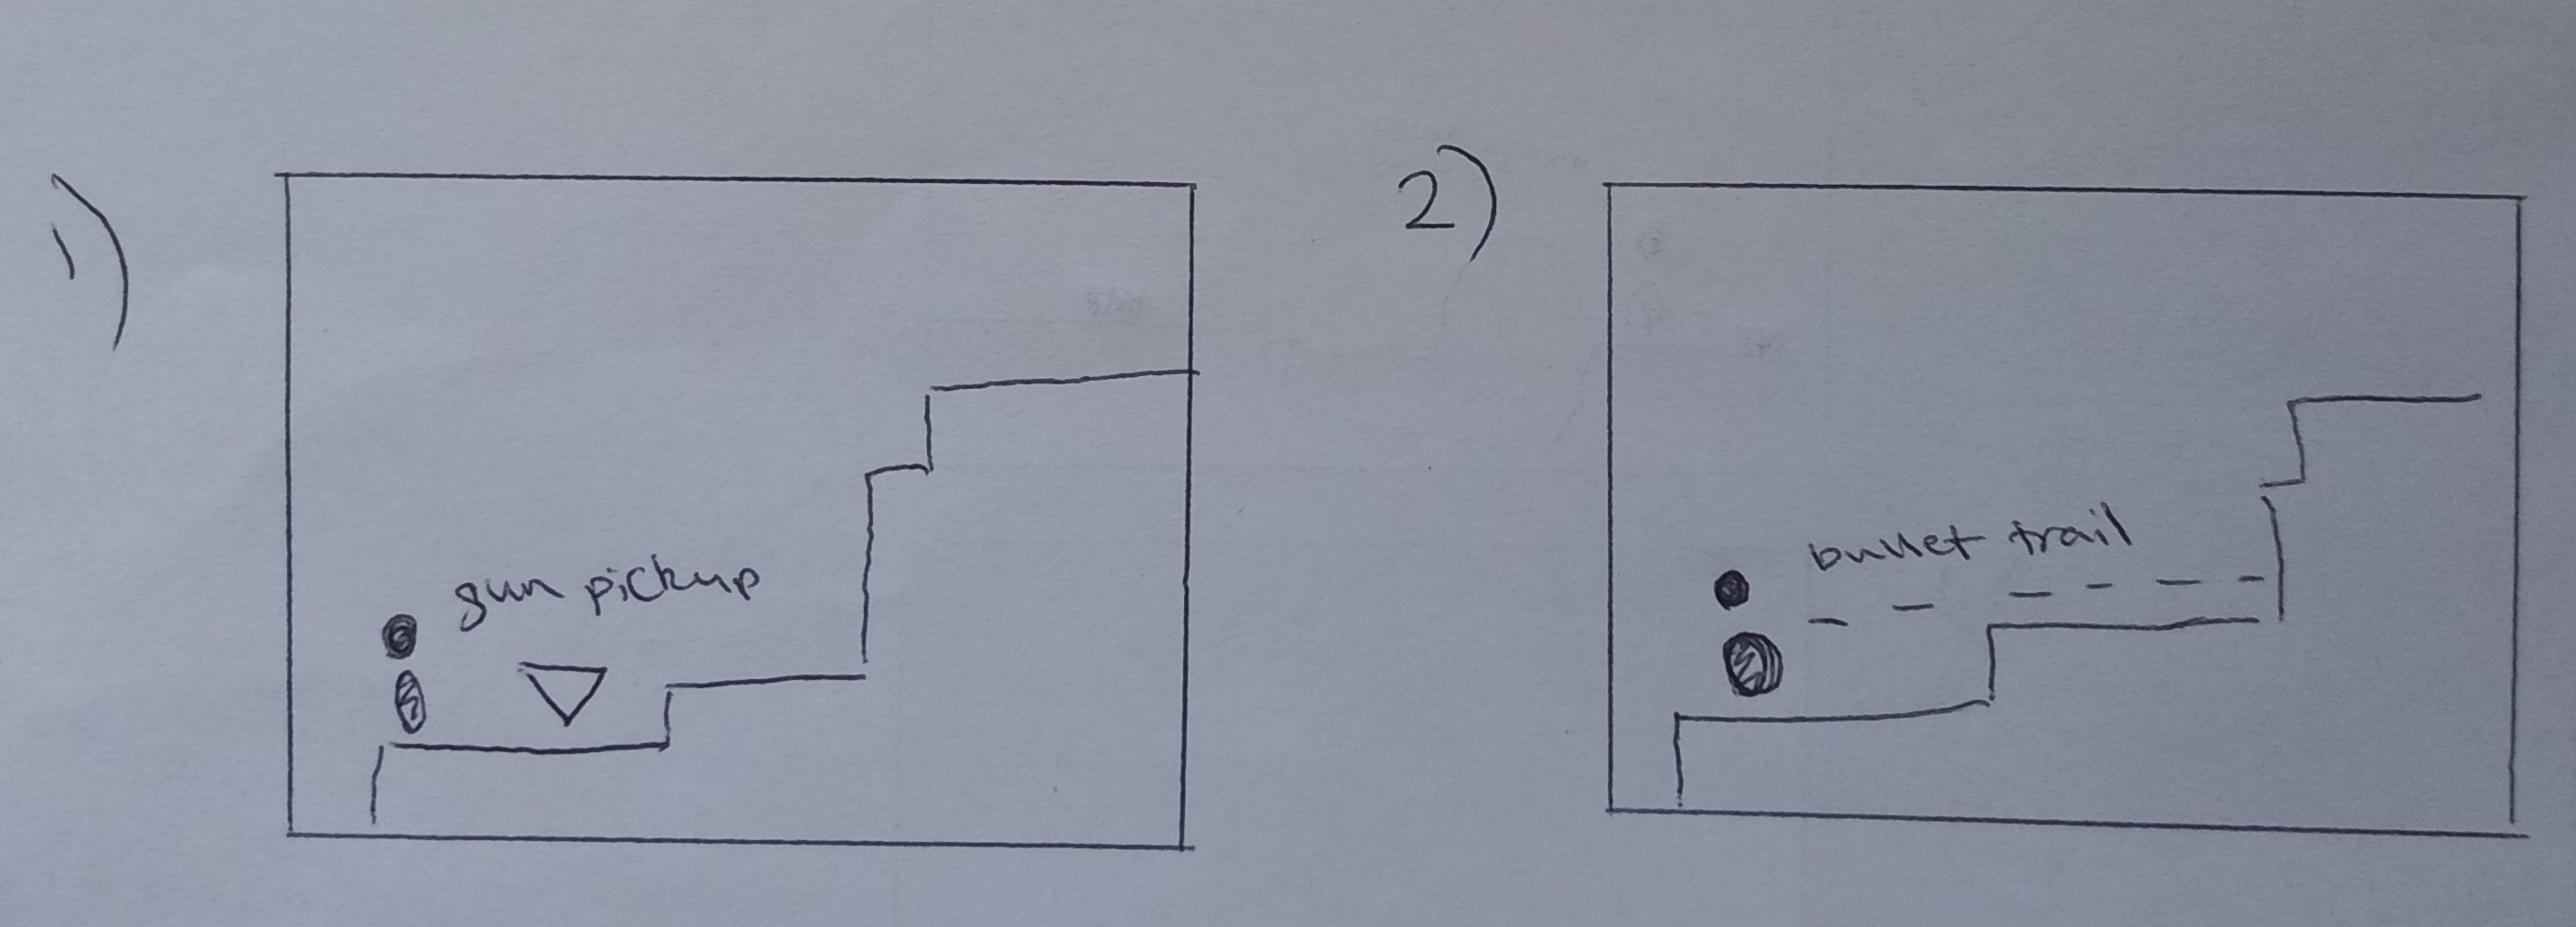 1)
gun pickup
2)
bullet trail